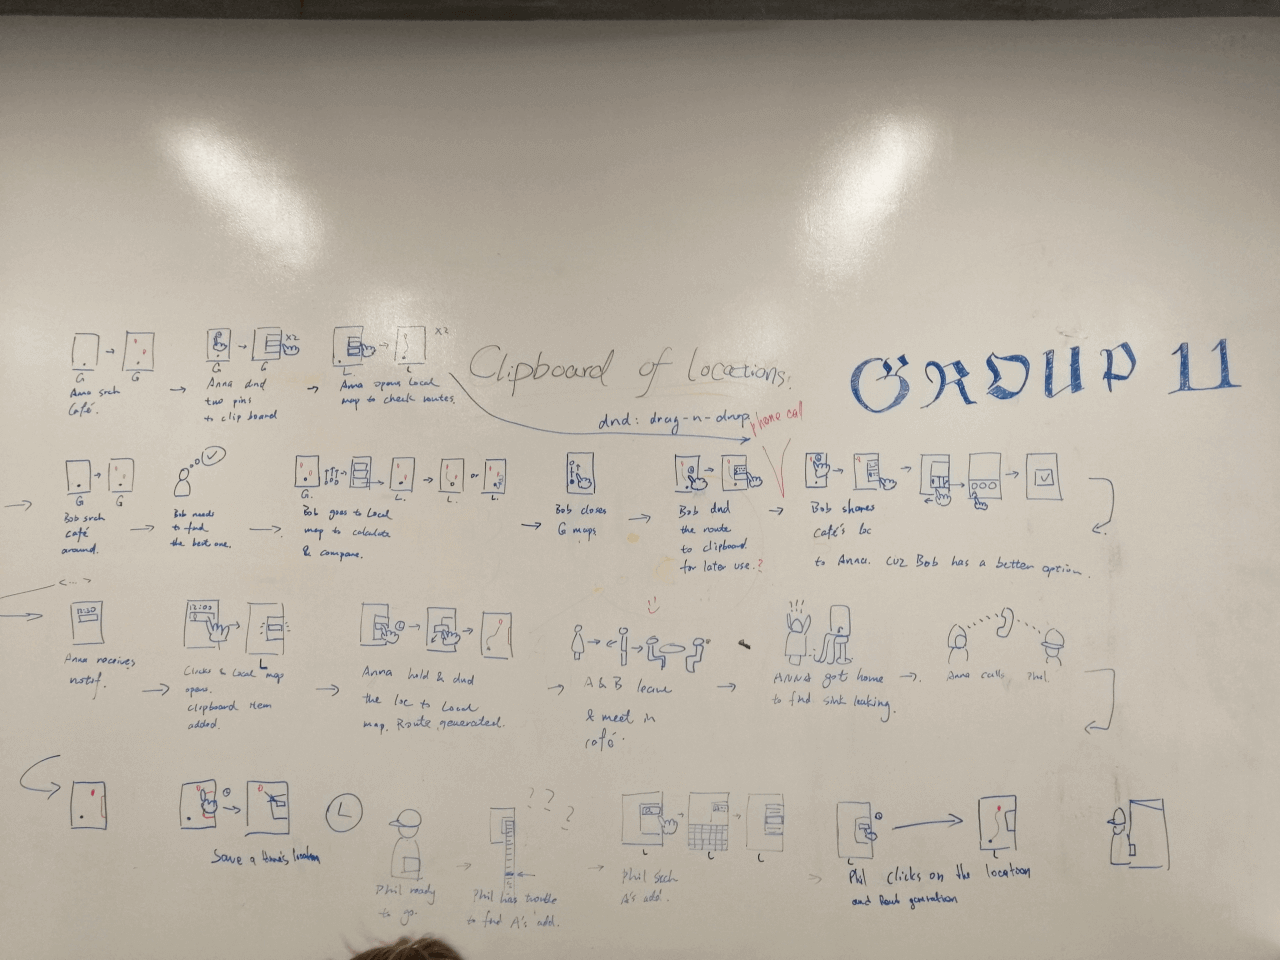 Clipboard of locations.
GROUP 11
dnd: drag-n-drop
phone call
G
G
Anna srch
Café.
X2
G
G
Anna dnd
two pins
to clip board
X2
L
L
Anna opens Local
map to check routes.
G
G
Bob srch
café
around.
Bob needs
to find
the best one.
G.
L.
or
L.
L.
Bob goes to Local
map to calculate
& compare.
Bob closes
G maps.
Bob dnd
the route
to clipboard
for later use.?
Bob shares
café's loc
to Anna. cuz Bob has a better option.
<...>
Anna receives
notif.
12:00
L
Clicks & Local map
opens.
clipboard item
added.
Anna hold & dnd
the loc to Local
map. Route generated.
A & B leave
& meet in
café.
ANNA got home
to find sink leaking.
Anna calls Phil.
Save a Anna's location
Phil ready
to go.
? ? ?
Phil has trouble
to find A's add.
L
L
L
Phil srch
A's add.
L
L
Phil clicks on the location
and